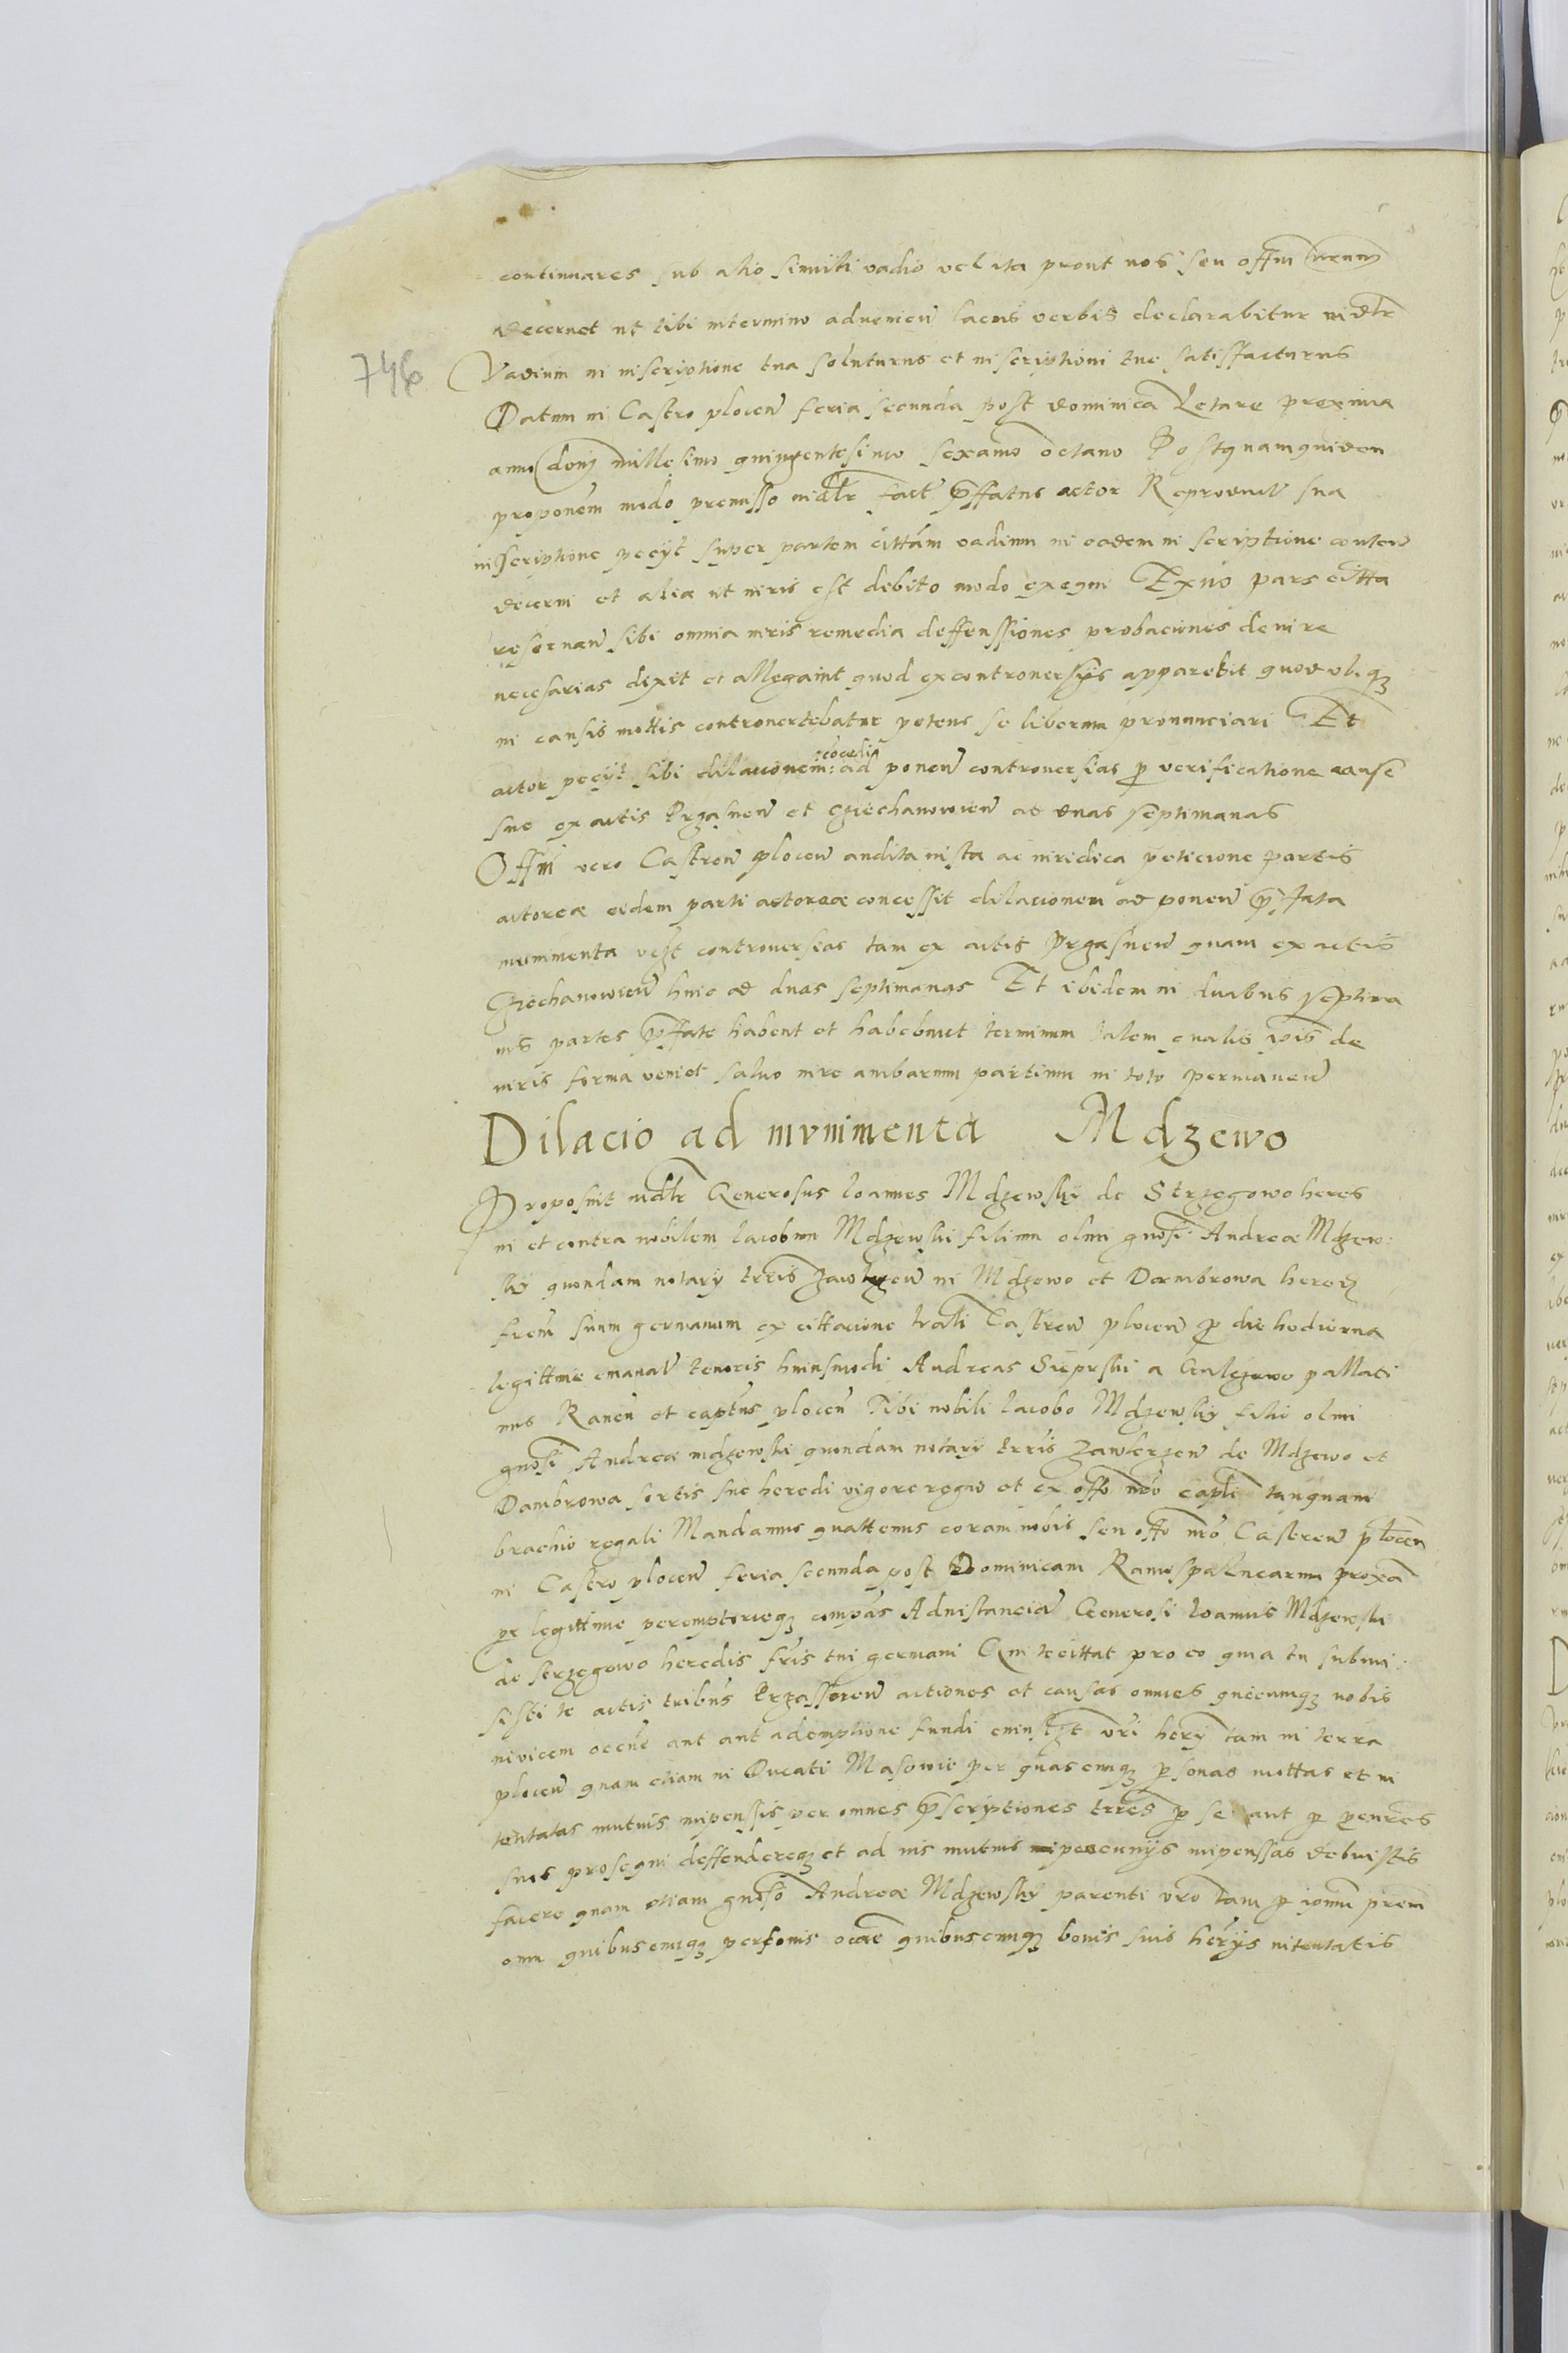 continuares sub alio simili vadio vel ita prout nos seu offm nrum
decernet ut tibi in termino advenien lacius verbis declarabitur iudlr
746
Vadium in inscriptione tua soluturus et inscriptioni tue satisfacturus
Datum in Castro plocen feria secunda post dominica Letare proxima
anno dom millesimo quingentesimo sexamo octavo Postquamquidem
proponem modo premisso iudlr fact pffatus actor Reproduct sua
inscriptione pecyt super partem cittam vadium in eadem inscriptione conten
decerni et alia ut iuris est debito modo exequi Ex quo pars citta
reservan sibi omnia iuris remedia deffenssiones probaciones de iure
necesarias dixit et allegavit quod ex controversys apparebit quod ubiqz
in causis mottis controvertebatur petens se liberum pronunciari Et
actor pecyt sibi dilacionem : cocedi ad ponen controversias p verificatione cause
sue ex actis Przasnen et Cziechanowien ad duas septimanas
Offm vero Castren plocen audita iusta ac iuridica peticione partis
actoreæ eidem parti actoreæ concessit dilacionem ad ponen pfata
munimenta vzt controversias tam ex actis Przasnen quam ex actis
Cziechanowien hinc ad duas septimanas Et ibidem in duabus septima
nis partes pffate habent et habebunt terminum talem qualis ipis de
iuris forma veniet salvo iure ambarum partium in toto permanen
Dilacio ad mvnimenta Mdzewo
Proposuit iudlr Generosus Ioannes Mdzewsky de Strzegowo heres
in et contra nobilem Iacobum Mdzewski filium olim gnosi Andreæ Mdzew
sky quondam notary terris Zawkrzen in Mdzewo et Dambrowa hered
frem suum germanum ex cittacione trali Castren plocen p die hodierna
legittime emanat tenoris huiusmodi Andreas Sieprski a Gulczewo pallati
nus Raven et captus plocen Tibi nobili Iacobo Mdzewsky filio olim
gnosi Andreæ mdzewski quondam notary terris Zawkrzen de Mdzewo et
Dambrowa sortis sue heredi vigore regio et ex offo nro capli tanquam
brachio regali Mandamus quattenus coram nobis seu offo nro Castren plocen
in Castro plocen feria secunda post Dominicam Ramispalmarum proxa
pr legittime peremptorieqz compas Adinstanciam Generosi Ioannis Mdzewski
de strzegowo heredis fris tui germani Qui te cittat pro eo quia tu submi
sisti te actis tribus Przassnen actiones et causas omnes quecumqz vobis
invicem
plocen quam etiam in Ducatu Masovie per quascumqz psonas mottas et in
tentatas mutuis inpenssis per omnes pscriptiones terres p se aut p
suos prosequi deffendereqz et ad ius mutuis pecunys inpenssas debuistis
facere quam etiam gnoso Andreæ Mdzewsky parenti vro tam p
cum quibuscumqz personis quibuscumqz bonis suis herys intentatis